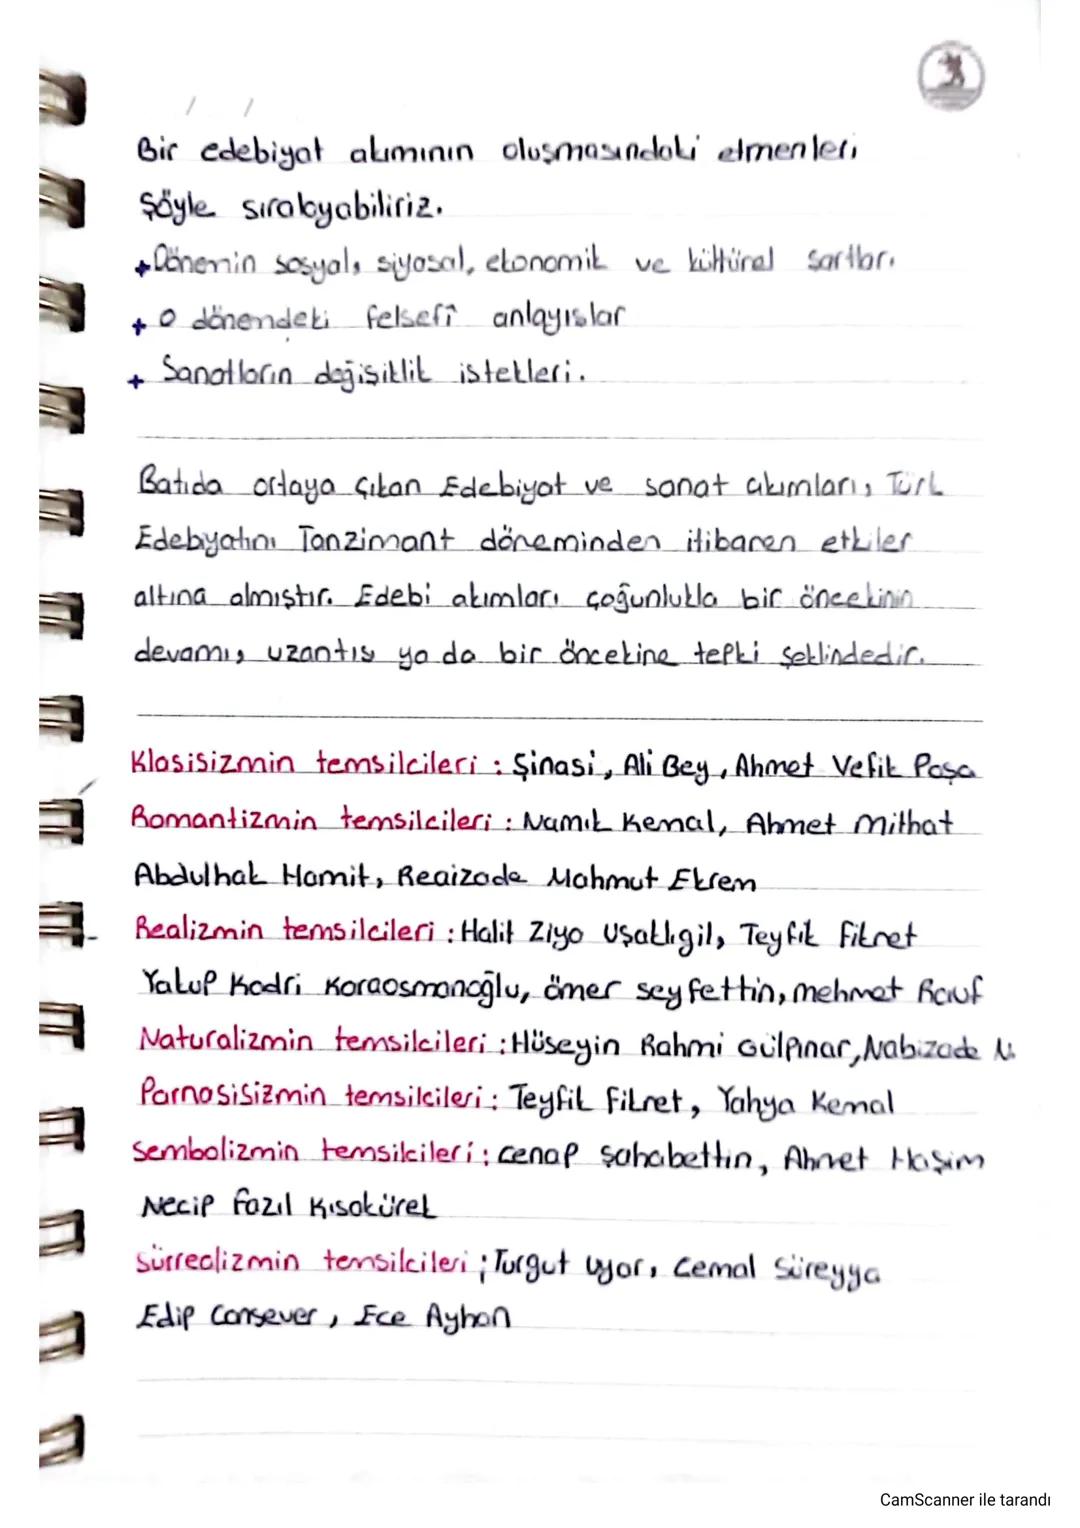 / /
Bir edebiyat akımının oluşmasındaki etmenleri
Şöyle sıralayabiliriz.
+ Dönemin sosyal, siyasal, ekonomik ve kültürel şartları
+ O dönemdeki felsefî anlayışlar
+ Sanatların değişiklik istekleri.
Batıda ortaya çıkan Edebiyat ve sanat akımları, Türk
Edebiyatını Tanzimant döneminden itibaren etkiler
altına almıştır. Edebi akımları çoğunlukla bir öncekinin
devamı, uzantısı ya da bir öncekine tepki şeklindedir.
Klasisizmin temsilcileri : Şinasi, Ali Bey, Ahmet Vefik Paşa
Romantizmin temsilcileri : Namık Kemal, Ahmet Mithat
Abdulhak Hamit, Reaizade Mahmut Ekrem
Realizmin temsilcileri : Halit Ziya Uşaklıgil, Teyfik Fikret
Yakup Kadri Karaosmanoğlu, ömer seyfettin, mehmet Rauf
Naturalizmin temsilcileri : Hüseyin Rahmi Gülpınar, Nabizade N.
Parnasisizmin temsilcileri : Teyfik Fikret, Yahya Kemal
Sembolizmin temsilcileri : Cenap Şahabettin, Ahmet Haşim
Necip Fazıl Kısakürek
Sürrealizmin temsilcileri ; Turgut Uyar, Cemal Süreyya
Edip Cansever, Ece Ayhan
CamScanner ile tarandı